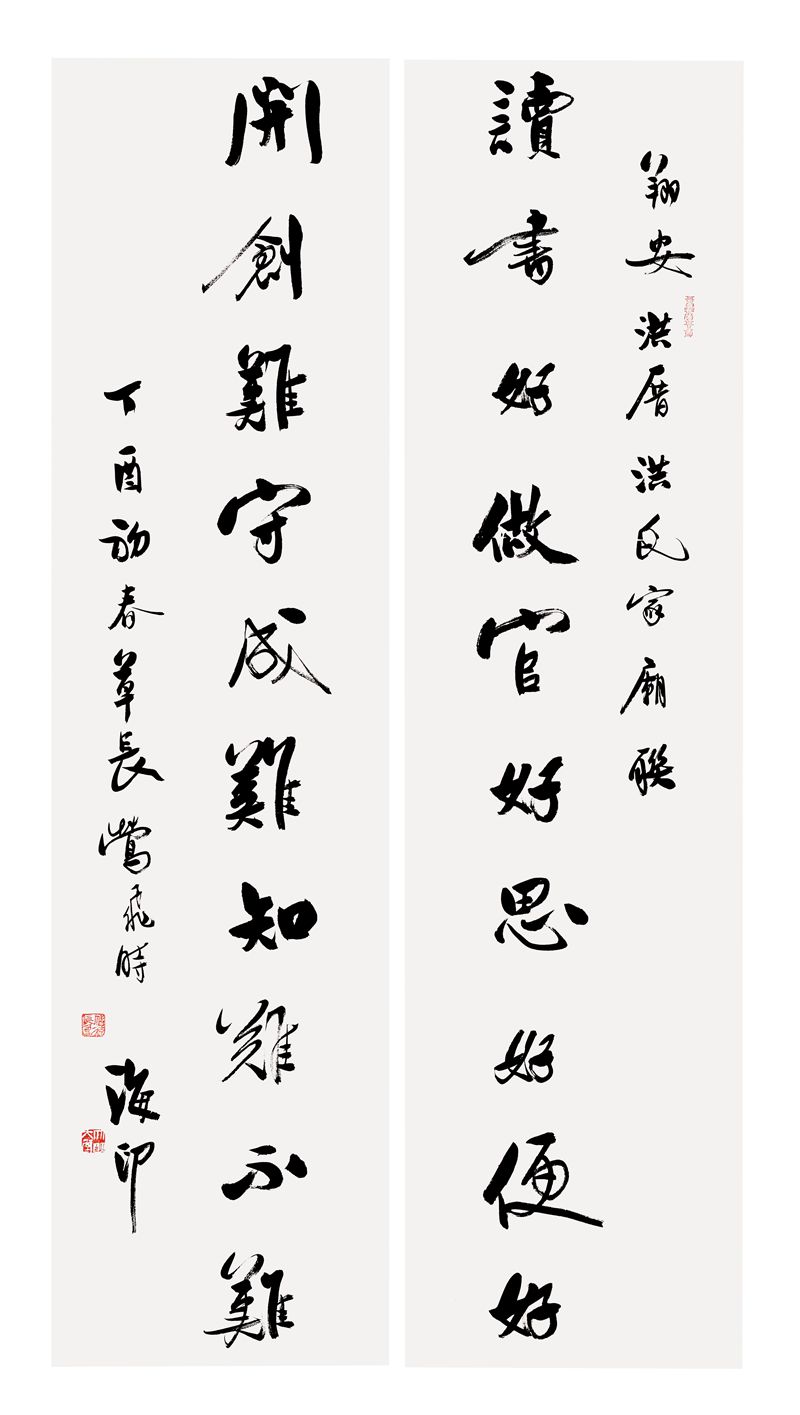 翔安洪厝洪氏家廟聯
讀書好做官好思好便好
開創難守成難知難不難
丁酉初春草長鶯飛時 海印